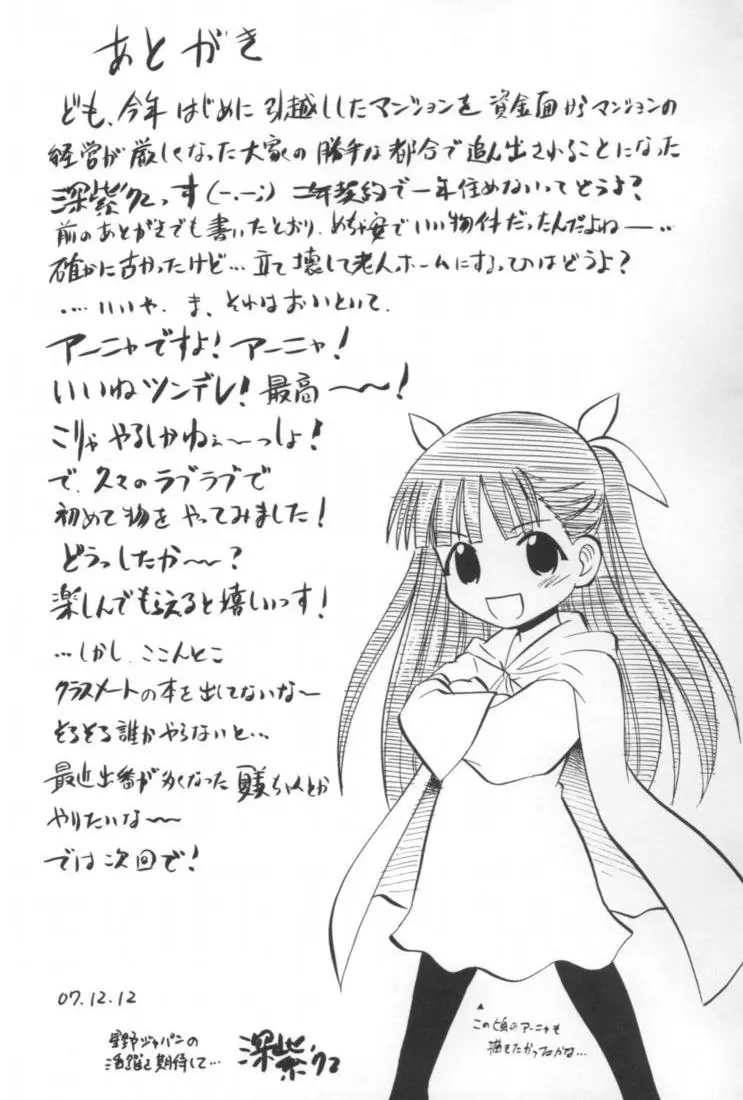 あとがき
ども、今年はじめに引越ししたマンションを資金面からマンションの
経営が厳しくなった大家の勝手な都合で追ん出されることになった
深紫クニっす(-.-;) 二年契約で一年住めないってどうよ?
前のあとがきでも書いたとおり、めちゃ安でいい物件だったんだよねー…
確かに古かったけど…立て壊して老人ホームにするってのはどうよ?
……いいや、ま、それはおいといて、
アーニャですよ!アーニャ!
いいねツンデレ!最高〜〜!
こりゃやるしかねぇ〜っしょ!
で、久々のラブラブで
初めて物をやってみました!
どうっしたか〜〜?
楽しんでもらえると嬉しいっす!
…しかし、ここんとこ
クラスメートの本を出してないな〜
そろそろ誰かやらないと…
最近出番が多くなったちゃんとか
やりたいな〜〜
では次回で!
07.12.12
星野ジャパンの
活躍を期待して…
深紫クニ
この頃のアーニャも
描きたかったかな…